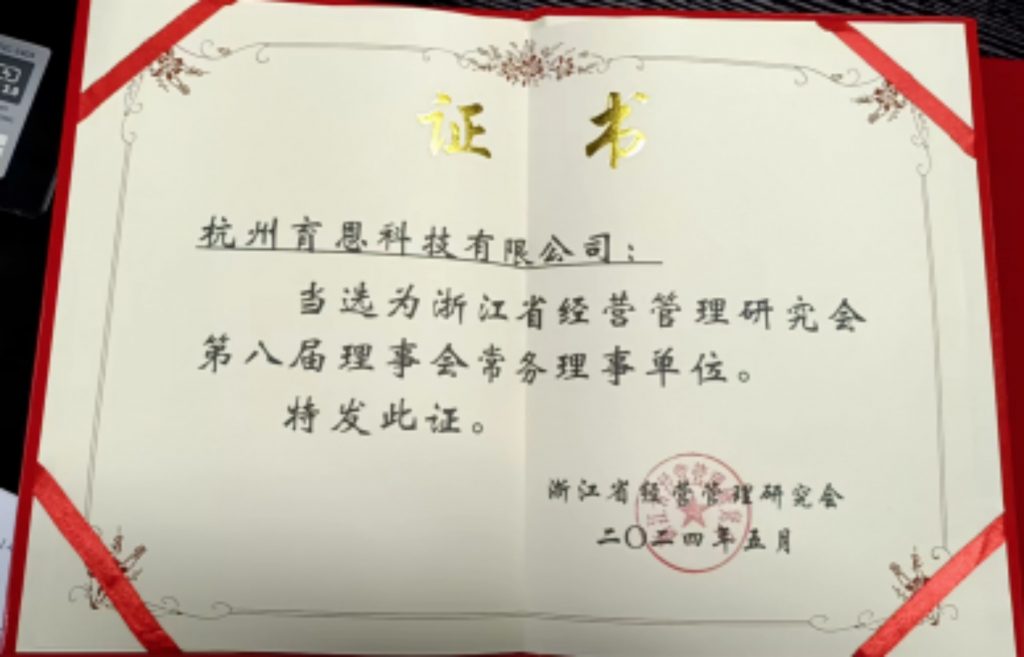 证书
杭州育恩科技有限公司：
当选为浙江省经营管理研究会
第八届理事会常务理事单位。
特发此证。
浙江省经营管理研究会
二〇二四年五月